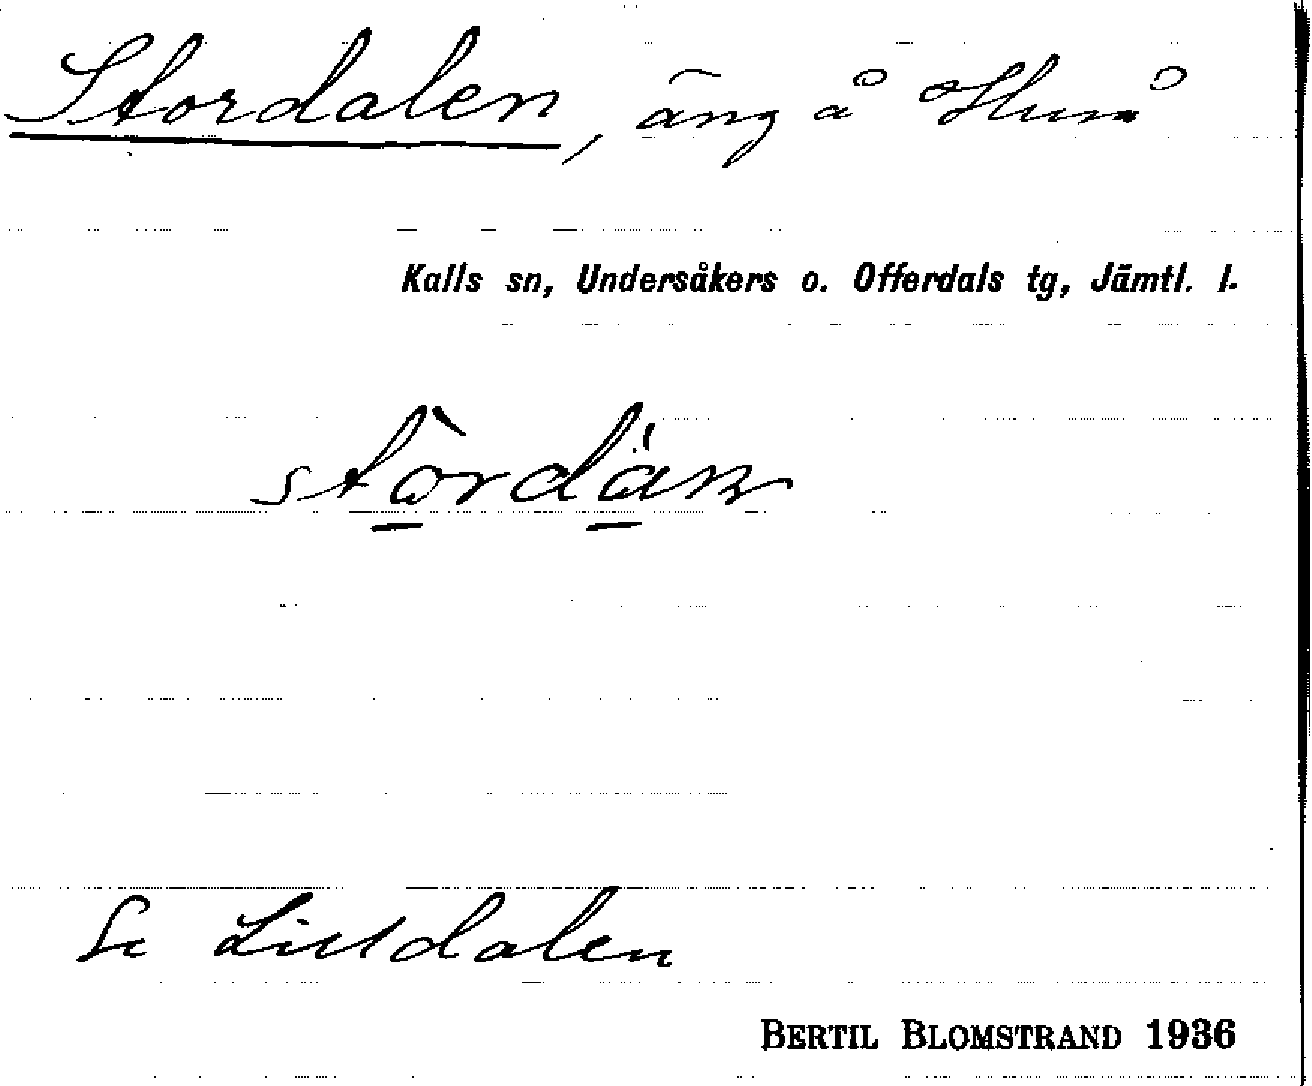 Stordalen, äng å Huså
Kalls sn, Undersåkers o. Offerdals tg, Jämtl. l.
Se Lilldalen
BERTIL BLOMSTRAND 1936